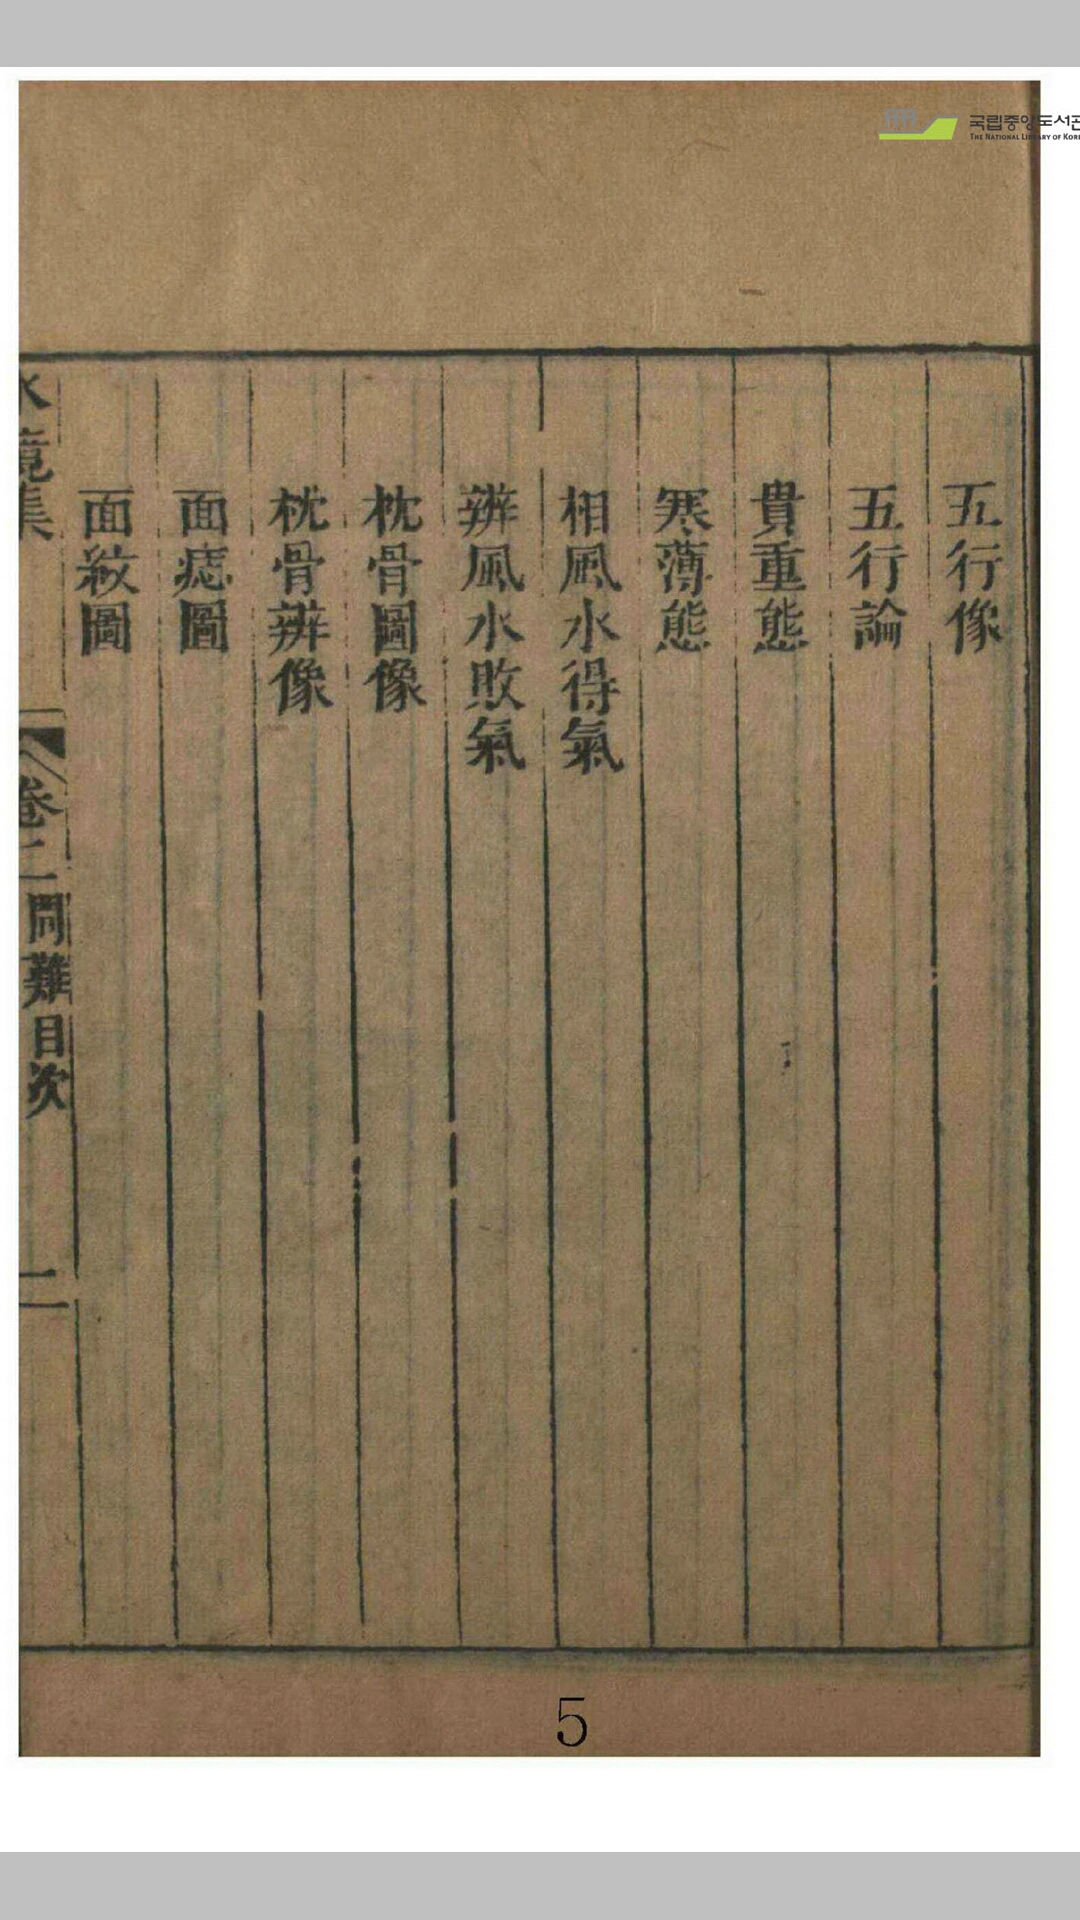 국립중앙도서관
THE NATIONAL LIBRARY OF KOREA
五行像
五行論
貴重態
寒薄態
相風水得氣
辨風水敗氣
枕骨圖像
枕骨辨像
面痣圖
面紋圖
水鏡集
卷二 問難目次
二
5